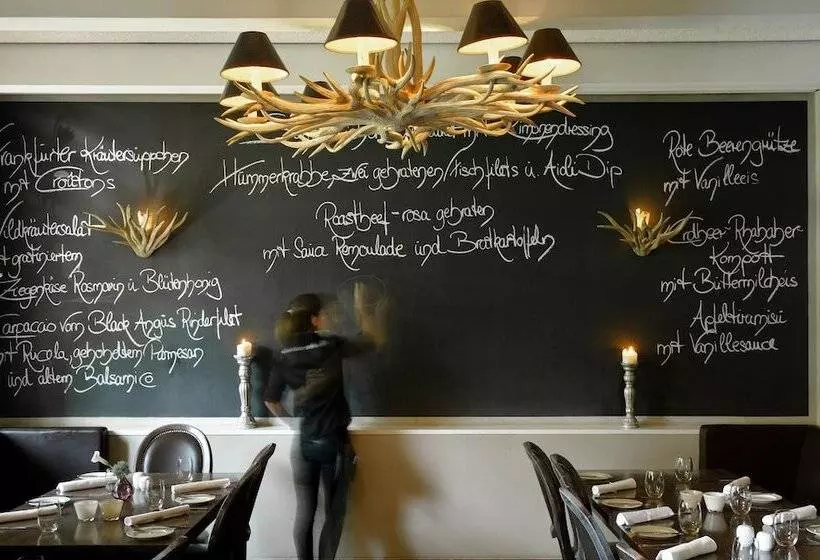 Frankfurter Kräutersüppchen
mit Croutons
Wildkräutersalat
gratiniertem
Ziegenkäse Rosmarin u Blütenhonig
Carpaccio vom Black Angus Rinderfilet
mit Rucola, gehobeltem Parmesan
und altem Balsamico
Limonendressing
Hummerkrabbe, zwei gebratenen Fischfilets u. Aioli Dip
Roastbeef - rosa gebraten
mit Remoulade und Bratkartoffeln
Rote Beerengrütze
mit Vanilleeis
Erdbeer-Rhabarber-
Kompott
mit Buttermilcheis
Apfeltiramisu
mit Vanillesauce